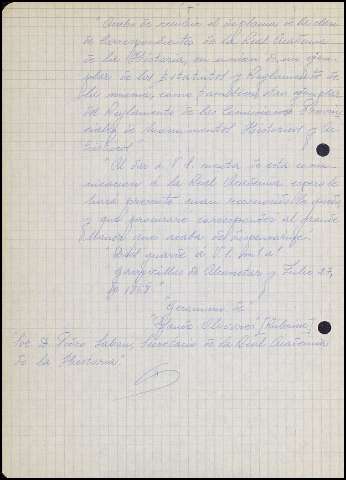 "Acabo de recibir el diploma de la clase
de Correspondiente de la Real Academia
de la Historia, en union de un ejem-
plar de los Estatutos y Reglamento de
la misma, como tambien otro ejemplar
del Reglamento de las Comisiones Provin-
ciales de Monumentos Historicos y Ar-
tisticos"
"Al dar a V.S. nota de esta comu-
nicacion á la Real Academia espero se
hará presente cuan reconocido quedo
y que procurare corresponder al grande
honor que acaba de dispensarme.
"Dios guarde a V.S. m. a.
"Garrovillas de Alconetar y Julio 27,
de 1868."
"Geronimo de
"Sande Olivares" [Rubrica]
"Sor. D. Pedro Sabau, Secretario de la Real Academia
de la Historia."